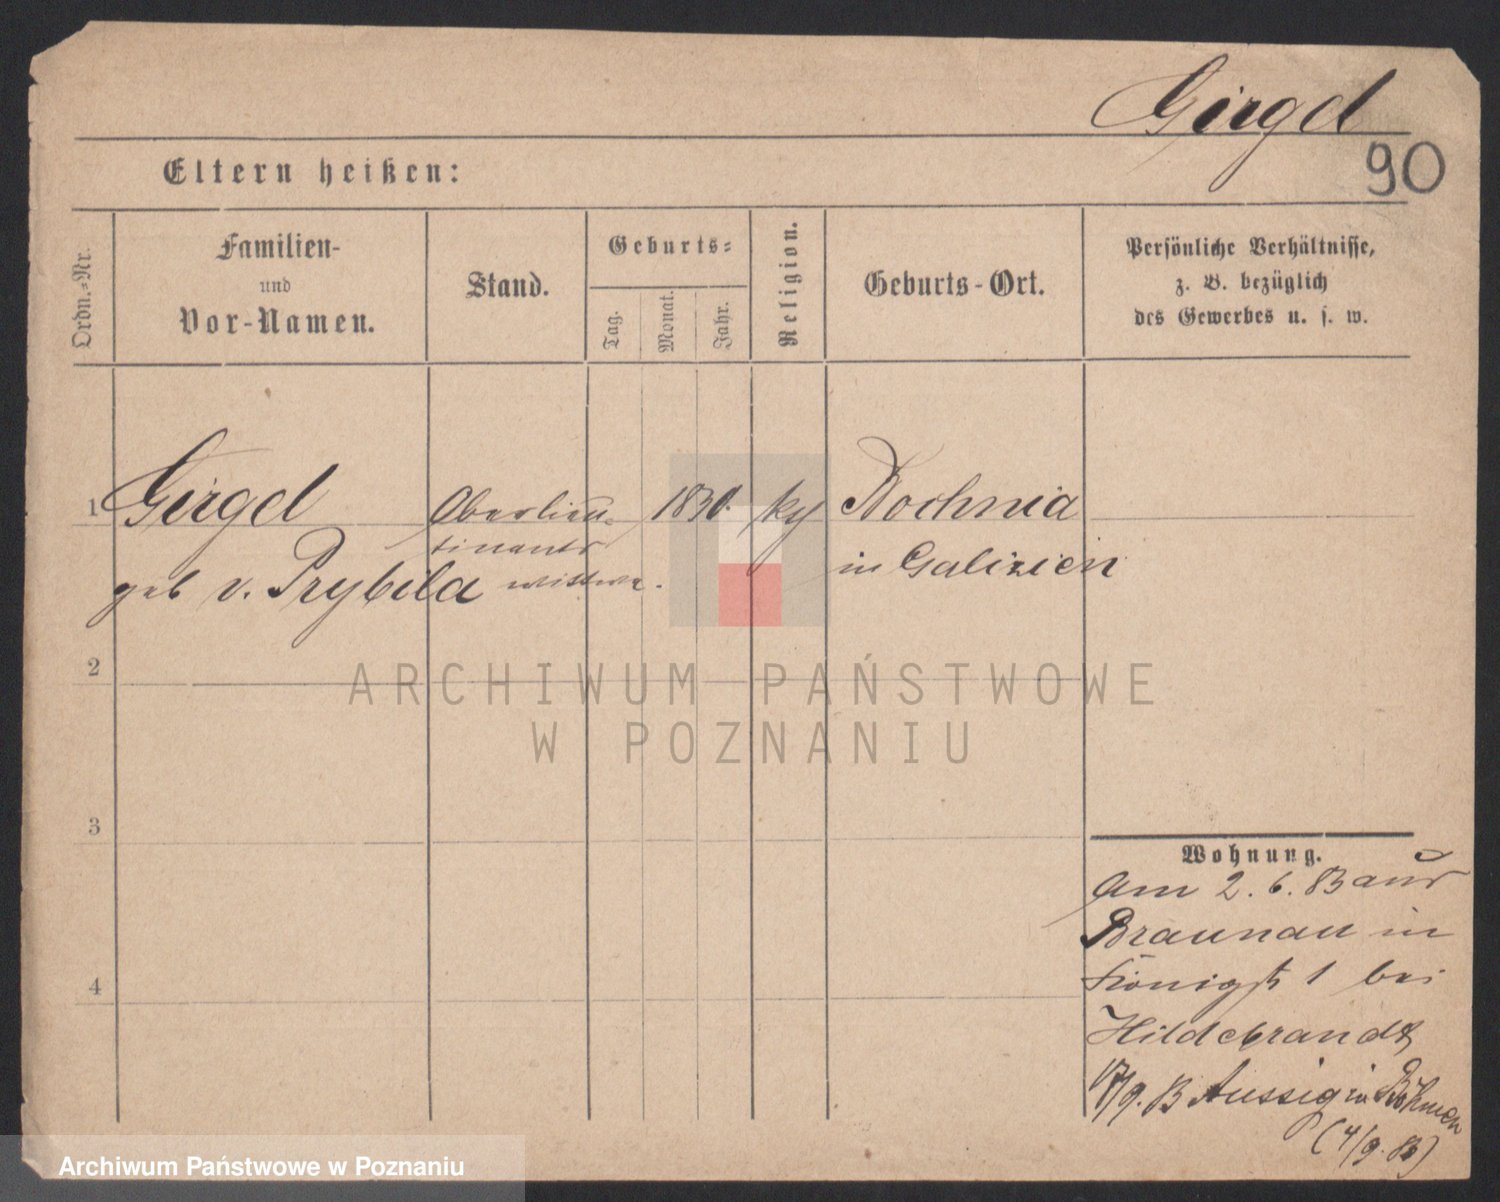 Girgel
90
Eltern heißen:
Ordn.-Nr.
Familien-
und
Vor-Namen.
Stand.
Geburts-
Tag.
Monat.
Jahr.
Religion.
Geburts-Ort.
Persönliche Verhältnisse,
z. B. bezüglich
des Gewerbes u. s. w.
1 Girgel Oberlieu- 1830. kg Bochnia
tinants
geb v. Prybila wittwe. in Galizien
2
3
4
Wohnung.
Am 2. 6. 83 aus
Braunau in
Königst 1 bei
Hildebrandt
17/9. 83 Aussig in Böhmen
(4/9. 83)
ARCHIWUM PAŃSTWOWE
W POZNANIU
Archiwum Państwowe w Poznaniu